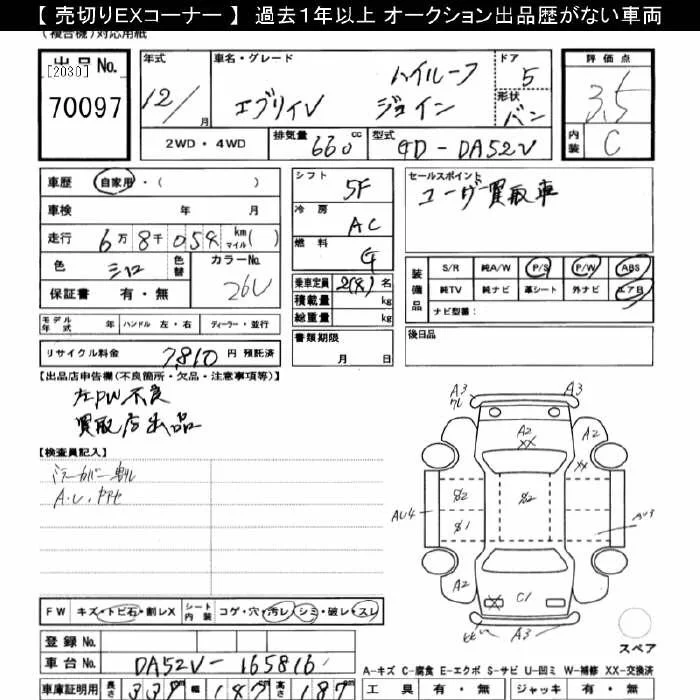 【 売切りEXコーナー 】 過去1年以上 オークション出品歴がない車両
(複合機)対応用紙
出品 No.
[2030]
70097
年式 12/ 月
車名・グレード
エブリイV
ハイルーフ
ジョイン
ドア 5
形状 バン
評価点
3.5
内装 C
2WD・4WD
排気量 660 cc
型式 GD-DA52V
車歴 自家用・( )
車検 年 月
走行 6万8千054 km マイル( )
色
色替
カラーNo. 26U
保証書 有・無
シフト 5F
冷房 AC
燃料 G
乗車定員 2(4) 名
積載量 kg
総重量 kg
書類期限
月 日
セールスポイント
ユーザー買取車
装備品
S/R 純A/W P/S P/W ABS
純TV 純ナビ 革シート 外ナビ エアB
ナビ型番:
後日品
モデル年式 年 ハンドル 左・右 ディーラー・並行
リサイクル料金 7,810 円 預託済
【出品店申告欄(不良箇所・欠品・注意事項等)】
左PW不良
買取店出品
【検査員記入】
ミラーカバー割れ
A.U.
A3
A3
A2
XX
A2
S2
S2
S1
AU4
A2
C1
A3
FW キズ・トビ石・割レX
シート内装 コゲ・穴・汚レ・シミ・破レ・スレ
スペア
登録 No.
車台 No. DA52V-165816
A-キズ C-腐食 E-エクボ S-サビ U-凹ミ W-補修 XX-交換済
車庫証明用 長さ 339 幅 147 高さ 187
工具 有・無 ジャッキ 有・無